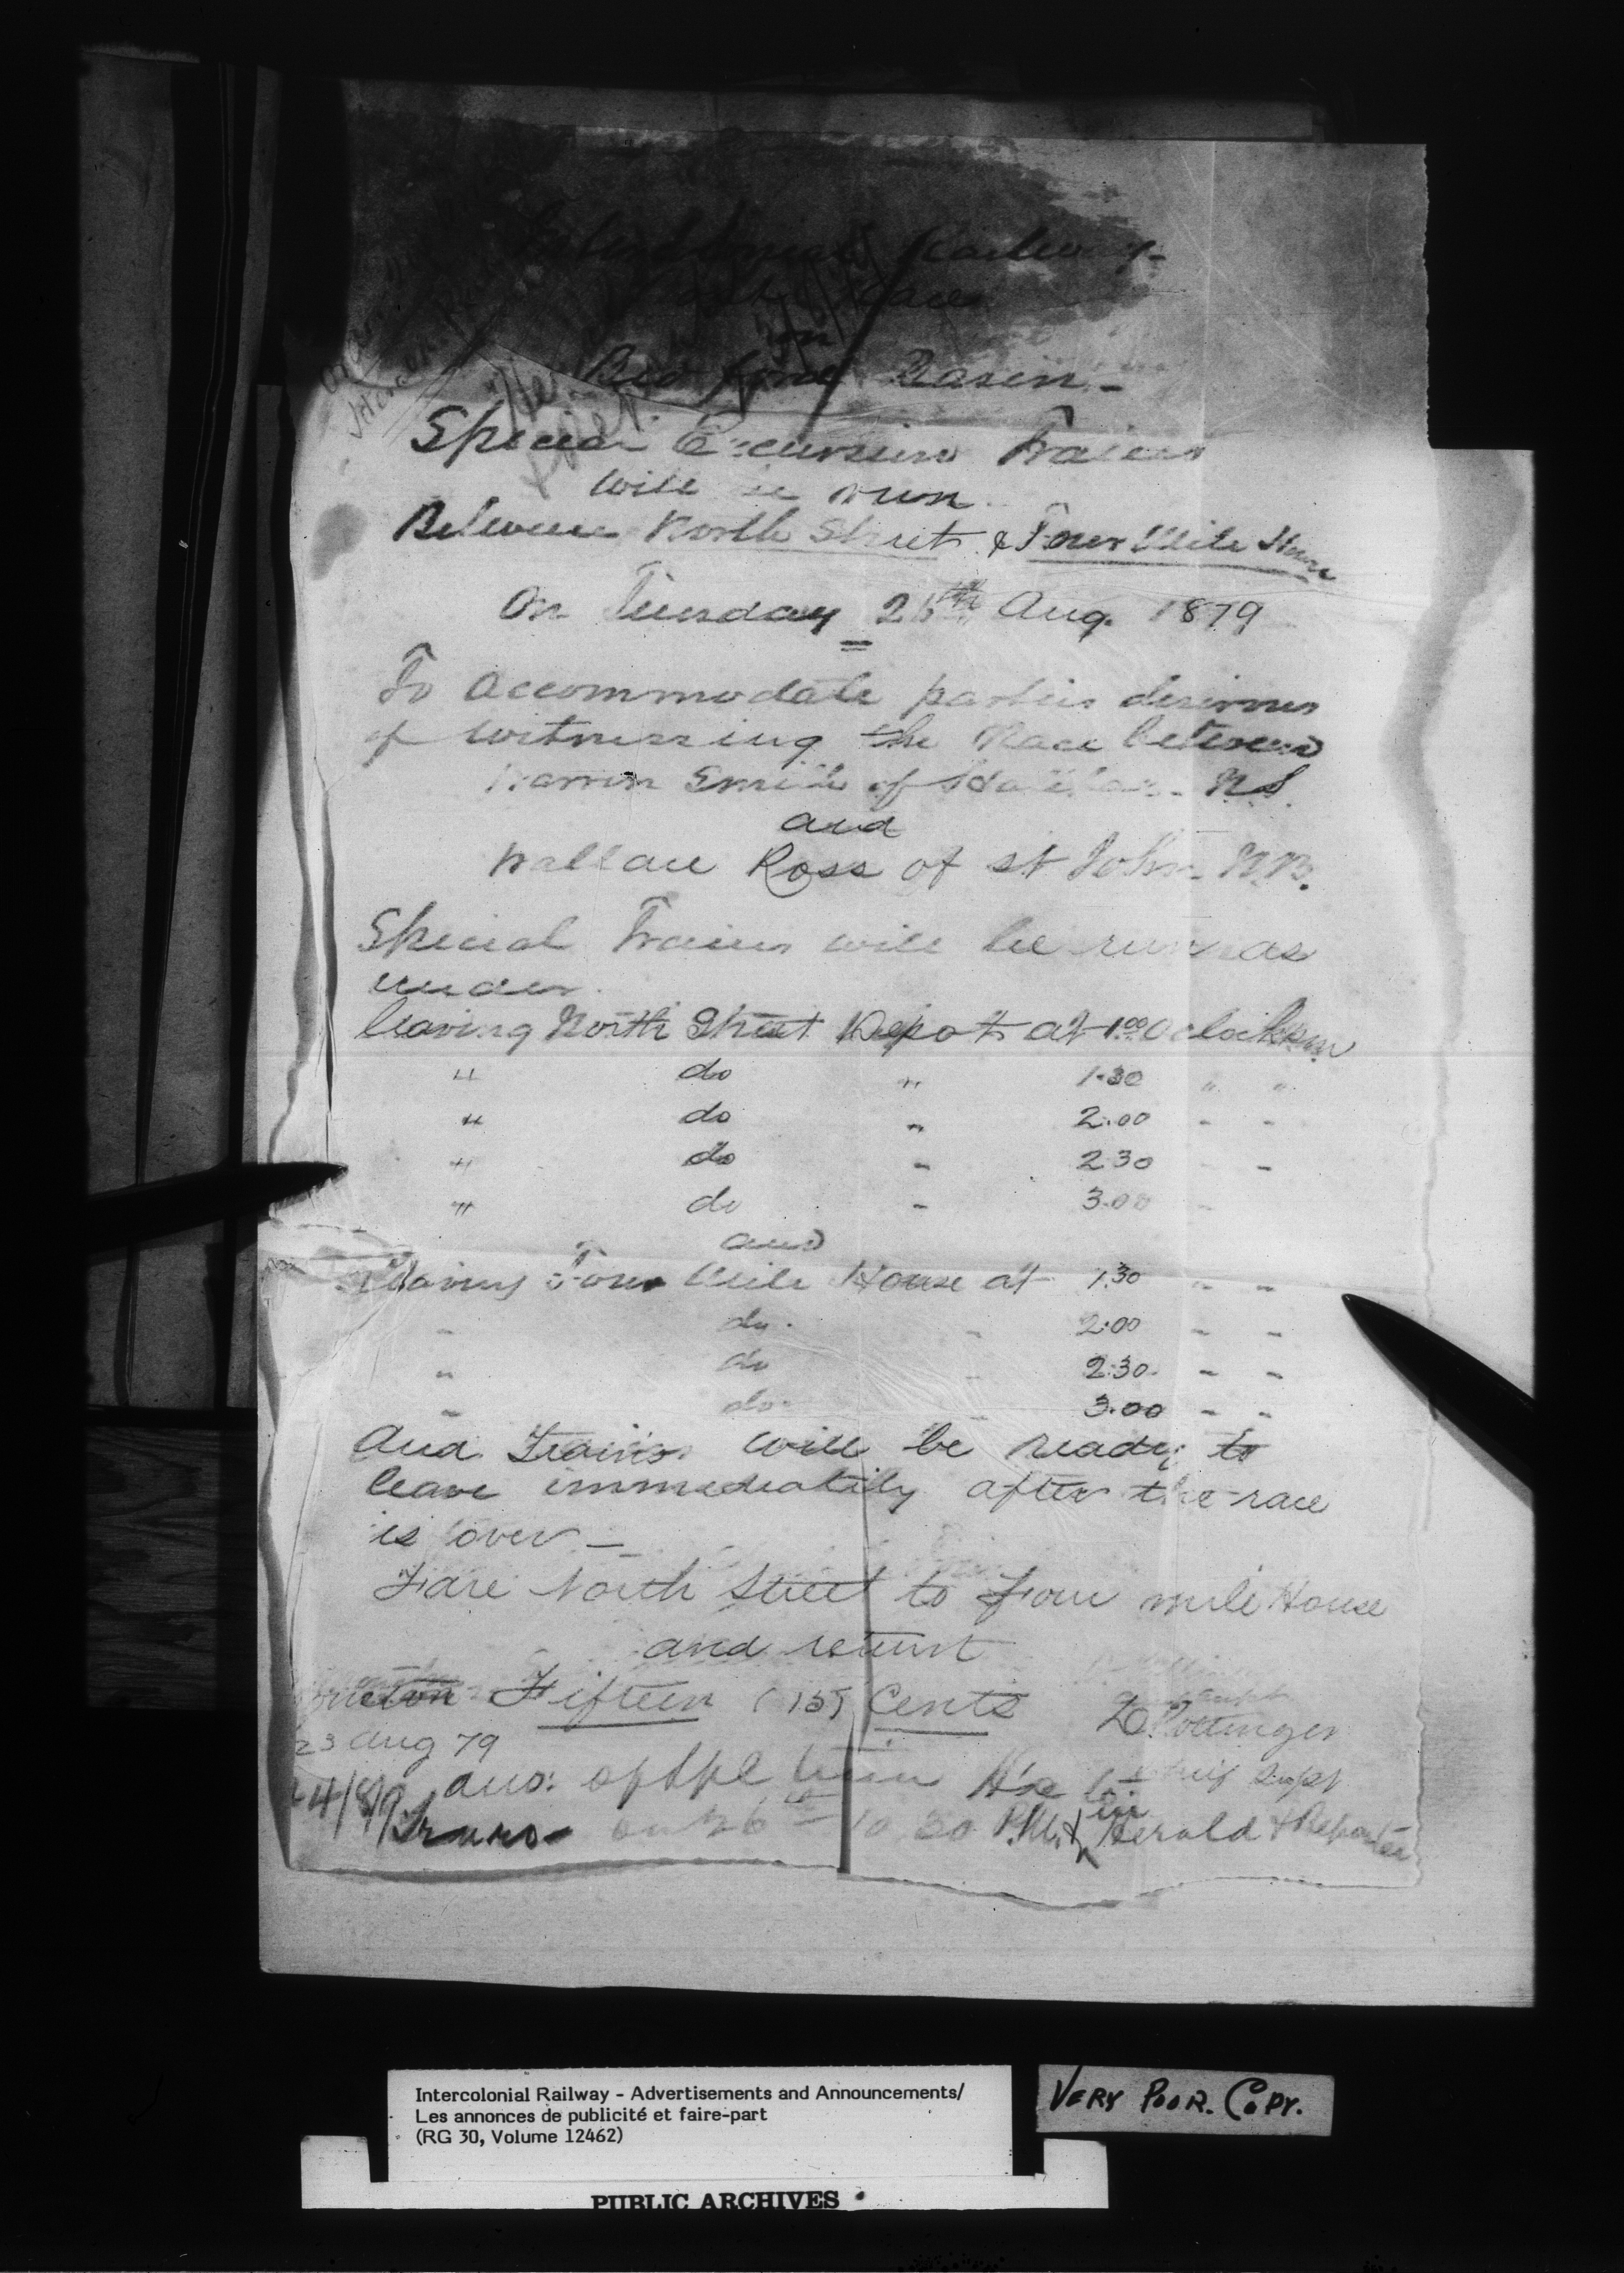 Intercolonial Railway -
Races
on
Bedford Basin -
Special Excursion Trains
will be run
Between North Street & Four Mile House
On Tuesday 26th Aug. 1879
To accommodate parties desirous
of witnessing the Race between
Warren Smith of Halifax - N.S.
and
Wallace Ross of St John - N.B.
Special Trains will be run as
under.
leaving North Street Depot at 1.00 O'clock p.m
" do " 1.30 " "
" do " 2.00 " "
" do " 2.30 " "
" do " 3.00 "
and
Leaving Four Mile House at 1.30 " "
" do. " 2.00 " "
" do " 2.30 " "
" do. " 3.00 " "
And Trains will be ready to
leave immediately after the race
is over -
Fare North Street to Four mile House
and return
Moncton Fifteen (15) Cents
23 Aug 79
D Pottinger
Chief Supt
24/8/9
Truro
on 26th 10.30 P.M. & in Herald & Reporter
Intercolonial Railway - Advertisements and Announcements/
Les annonces de publicité et faire-part
(RG 30, Volume 12462)
VERY POOR. COPY.
PUBLIC ARCHIVES